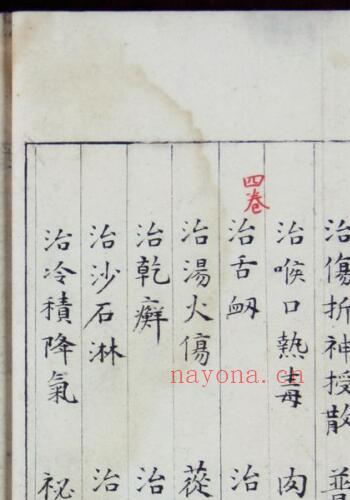 治傷折神授散
治喉口熱毒 肉
四卷
治舌衄 治
治湯火傷 蓯
治乾癬 治
治沙石淋 治
治冷積降氣 祕
nayona.cn